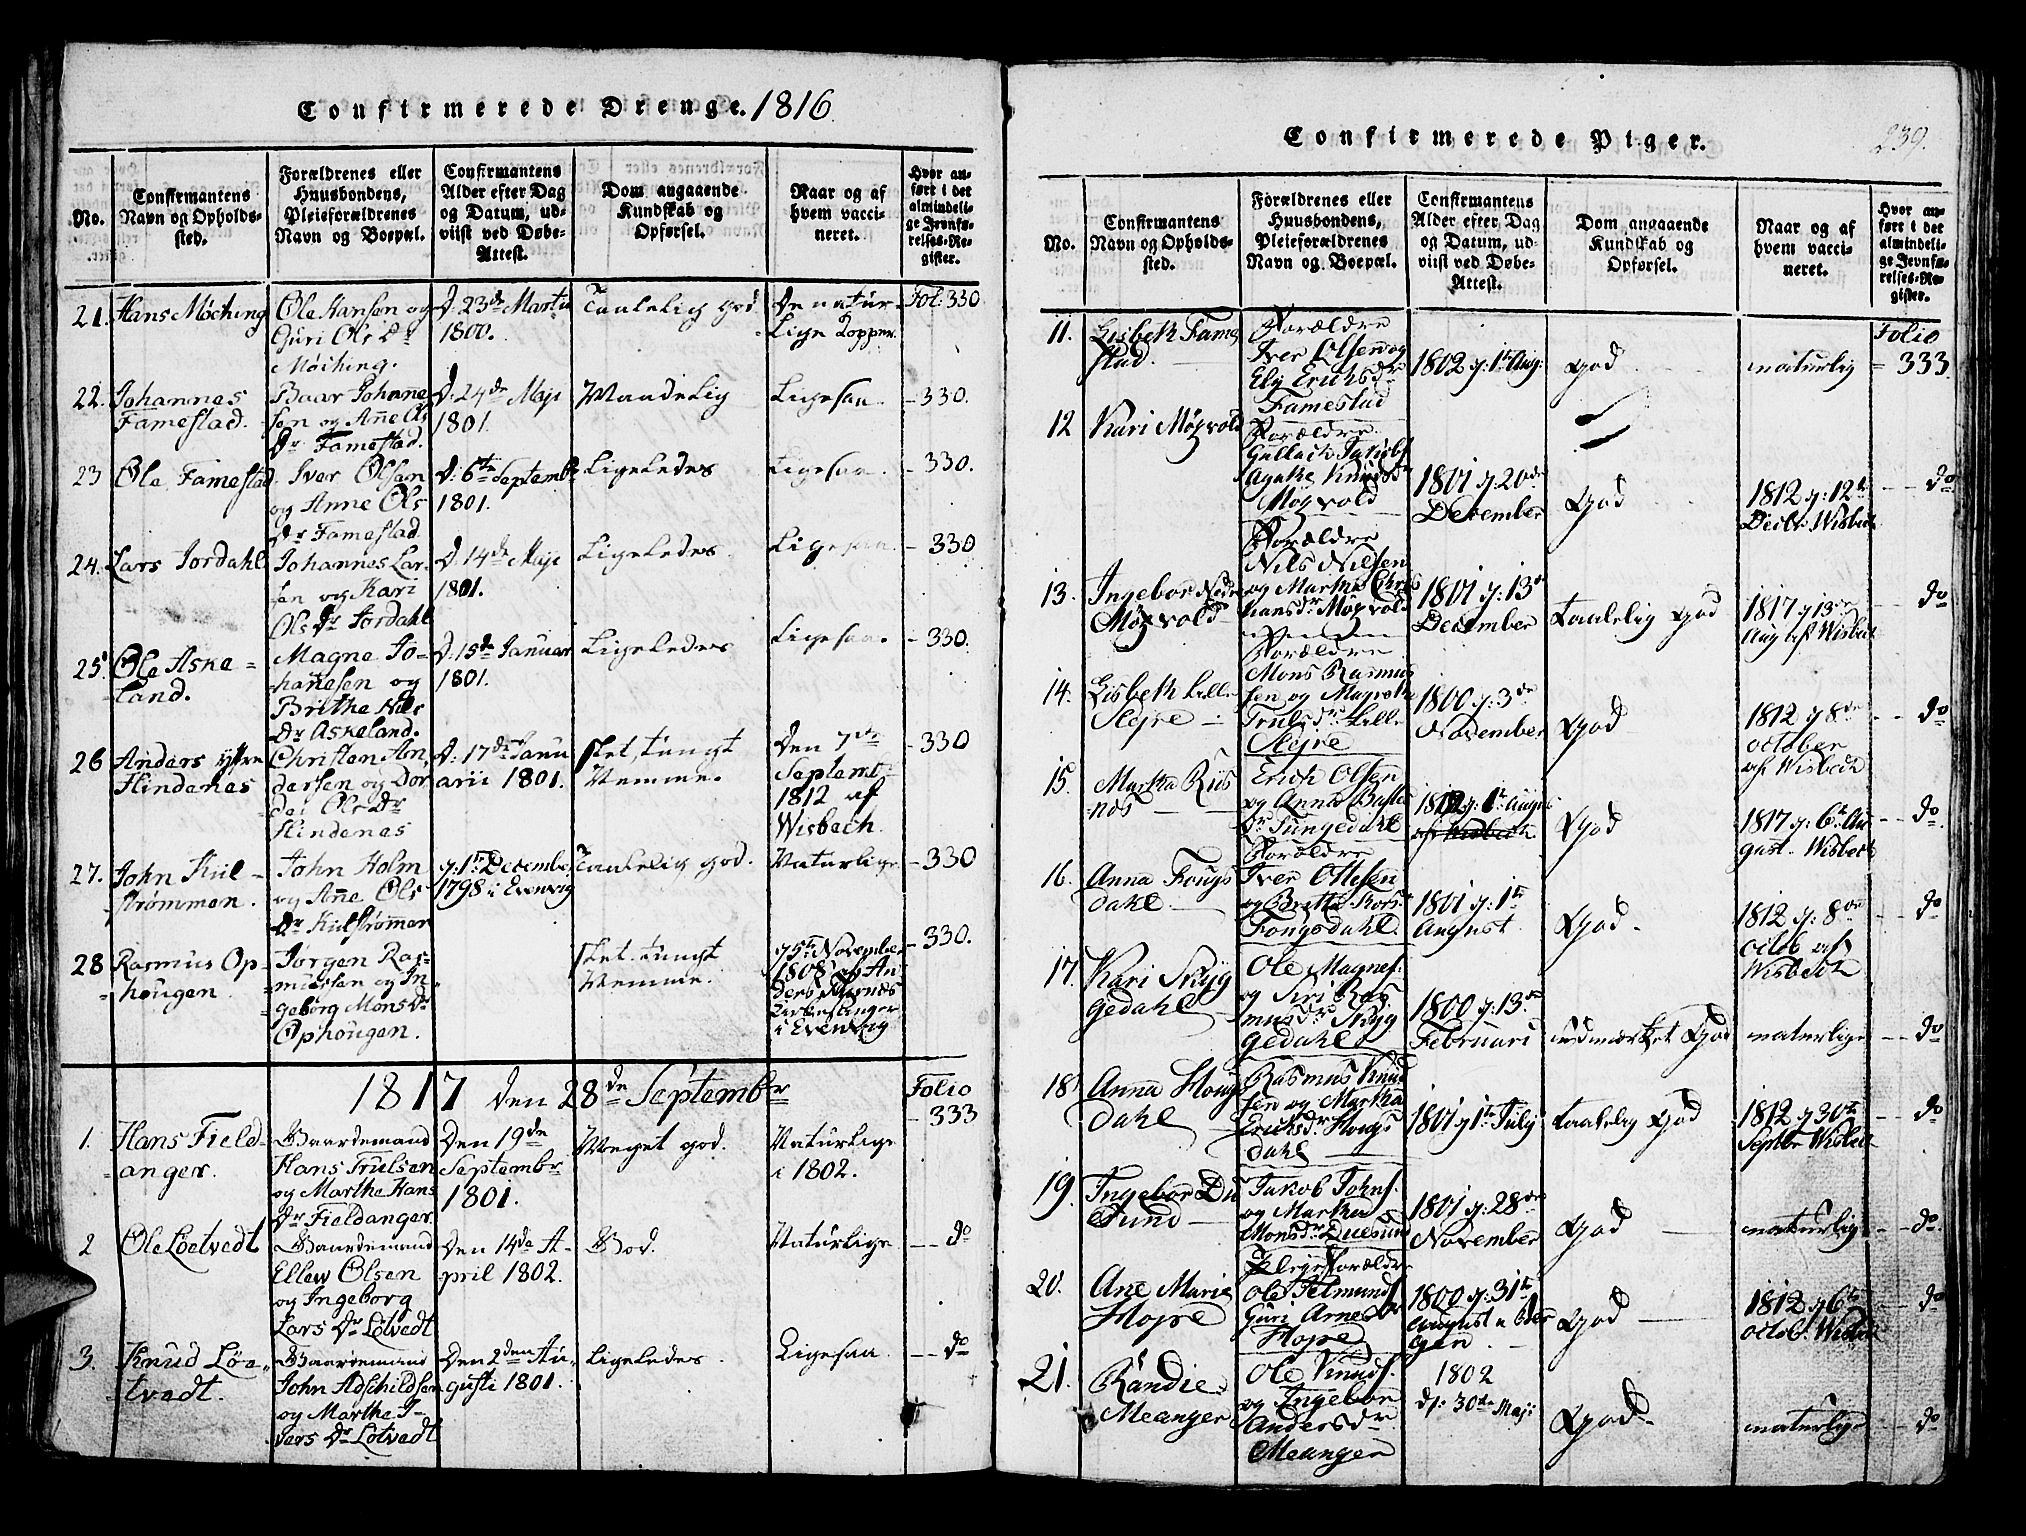 Confirmerede Drenge. 1816
No.
Confirmantens
Navn og Opholds-
sted.
Forældrenes eller
Huusbondens,
Pleieforældrenes
Navn og Boepæl.
Confirmantens
Alder efter Dag
og Datum, ud-
viist ved Døbe-
Attest.
Dom angaaende
Kundskab og
Opførsel.
Naar og af
hvem vacci-
neret.
Hvor an-
ført i det
almindeli-
ge Jevnfø-
relses-Re-
gister.
21. Hans Møching
Ole Hansen og
Guri Ols Dr
Møching.
D. 23de Martii
1800.
Taalelig god
De natur-
lige Kopper.
Fol: 330
22. Johannes
Famestad.
Baar Johanne
sen og Anne Ols
Dr Famestad.
D. 24de Maji
1801.
Maadelig
Ligesaa.
- 330.
23 Ole Famestad.
Iver Olsen
og Anne Ols
Dr Famestad
D: 6te Septembr
1801.
Ligeledes
Ligesaa.
- 330.
24. Lars Jordahl
Johannes Lar-
sen og Kari
Ols Dr Jordahl
D. 14de Maji
1801.
Ligeledes.
Ligesaa.
- 330
25. Ole Aske-
land.
Magne Jo-
hannesen og
Brithe Nils
Dr Askeland.
D. 15de Januar
1801.
Ligeledes
Ligesaa.
- 330.
26 Anders ytre
Hindenes
Christen An,
dersen og Dor
dei Ols Dr
Hindenes
D. 17de Janu
arii 1801.
slet, tungt
Nemme.
Den 7de
Septemb.
1812 af
Wisbech.
- 330
27. John Kiil-
strømmen.
John Holm
og Anne Ols
Dr Kiilstrømmen
g: 1te December
1798 i Evenvig
Taalelig god.
Naturlige
- 330
28 Rasmus Op-
hougen.
Jørgen Ras-
mussen og In,
geborg Mons Dr
Ophougen.
slet tungt
Nemme.
g 5te November
1808 af An
ders
Kirkesanger
i Evenvig
- 330.
1817 den 28de Septembr
Folio
- 333
1. Hans Field-
anger.
Gaardemand
Hans Trulsen
og Marthe Hans
Dr Fieldanger.
Den 19de
Septembr
1801.
Meget god.
Naturlige
i 1802.
2 Ole Løetvedt
Gaardemand
Ellew Olsen
og Ingeborg
Lars Dr Lötvedt
Den 14de A-
pril 1802.
God.
Naturlige
- do
3. Knud Løe-
tvedt.
Gaardemand
John Adschildsen
og Marthe I-
vers Dr Lötvedt
Den 2den Au-
gusti 1801.
Ligeledes.
Ligesaa.
- do
Confirmerede Piger.
239.
No.
Confirmantens
Navn og Opholds-
sted.
Forældrenes eller
Huusbondens,
Pleieforældrenes
Navn og Boepæl.
Confirmantens
Alder efter Dag
og Datum, ud-
viist ved Døbe-
Attest.
Dom angaaende
Kundskab og
Opførsel.
Naar og af
hvem vacci-
neret.
Hvor an-
ført i det
almindeli-
ge Jevnfø-
relses-Re-
gister.
11. Lisbeth Fame
stad.
Forældre
Iver Olsen og
Eli Erichsdr
Famestad
1802 g: 1te Aug:
God
naturlig
Folio
= 333
12 Kari Møgvold
Forældre
Gullach Jakobs
Agathe Knudsdr
Møgvold
1801 g: 20de
December
God
1812 g: 12te
Decbr Wisbech
- do
13. Ingebor Nedre
Møgvold
Forældre
Nils Nielsen
og Martha Chris
hansdr Møgvold
1801 g: 13de
December
Taalelig God
1817 g 13de
Aug af Wisbech
- do
14. Lisbeth Lille
Slejre
Forældre
Mons Rasmus
sen og Magrethe
Trulsdr Lille
Slejre
1800 g: 3de
November
God
1812 g 8de
october
af Wisbech
- do
15. Martha Riis
næs
Erich Olsen
og Anna
Dr Tungedahl
1802 g: 1te August
af Wisbech
God
1817 g: 6te Au
gust. Wisbech
- do
16. Anna Fougs
dahl
Forældre
Iver Ottesen
og Britta
Fougsdahl.
1801 g: 1te
August
God.
1812 g: 8de
octob af
Wisbech
- do
17. Kari Skyg
gedahl
Ole Magnes.
og Siri Ras
musdr Skyg
gedahl
1800 g: 13de
Februari
udmærket God
naturlige
- do
18 Anna Hougs
dahl
Rasmus Knud
sen og Martha
Erichsdr Hougs
dahl
1801 g 1te July
taalelig God
1812 g 30te
Septbr Wisbech
- do
19. Ingebor Du
sund
Jakob Johns.
og Martha
Monsdr Duesund
1801 g: 28de
November
God
naturlig
- do
20. Ane Marie
Hope
Plejeforældre
Ole Feimunds.
Guri Arnesdr
Hope
1800 g: 31te
August i Ber
gen.
God
1812 g 6te
octob. Wisbech
- do
21. Randie
Meanger
Ole Knuds.
og Ingebor
Andersdr
Meanger
1802
d: 30te Maji
God
naturlige
- do